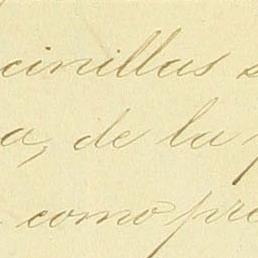 cinillas s
a, de la p
como pre